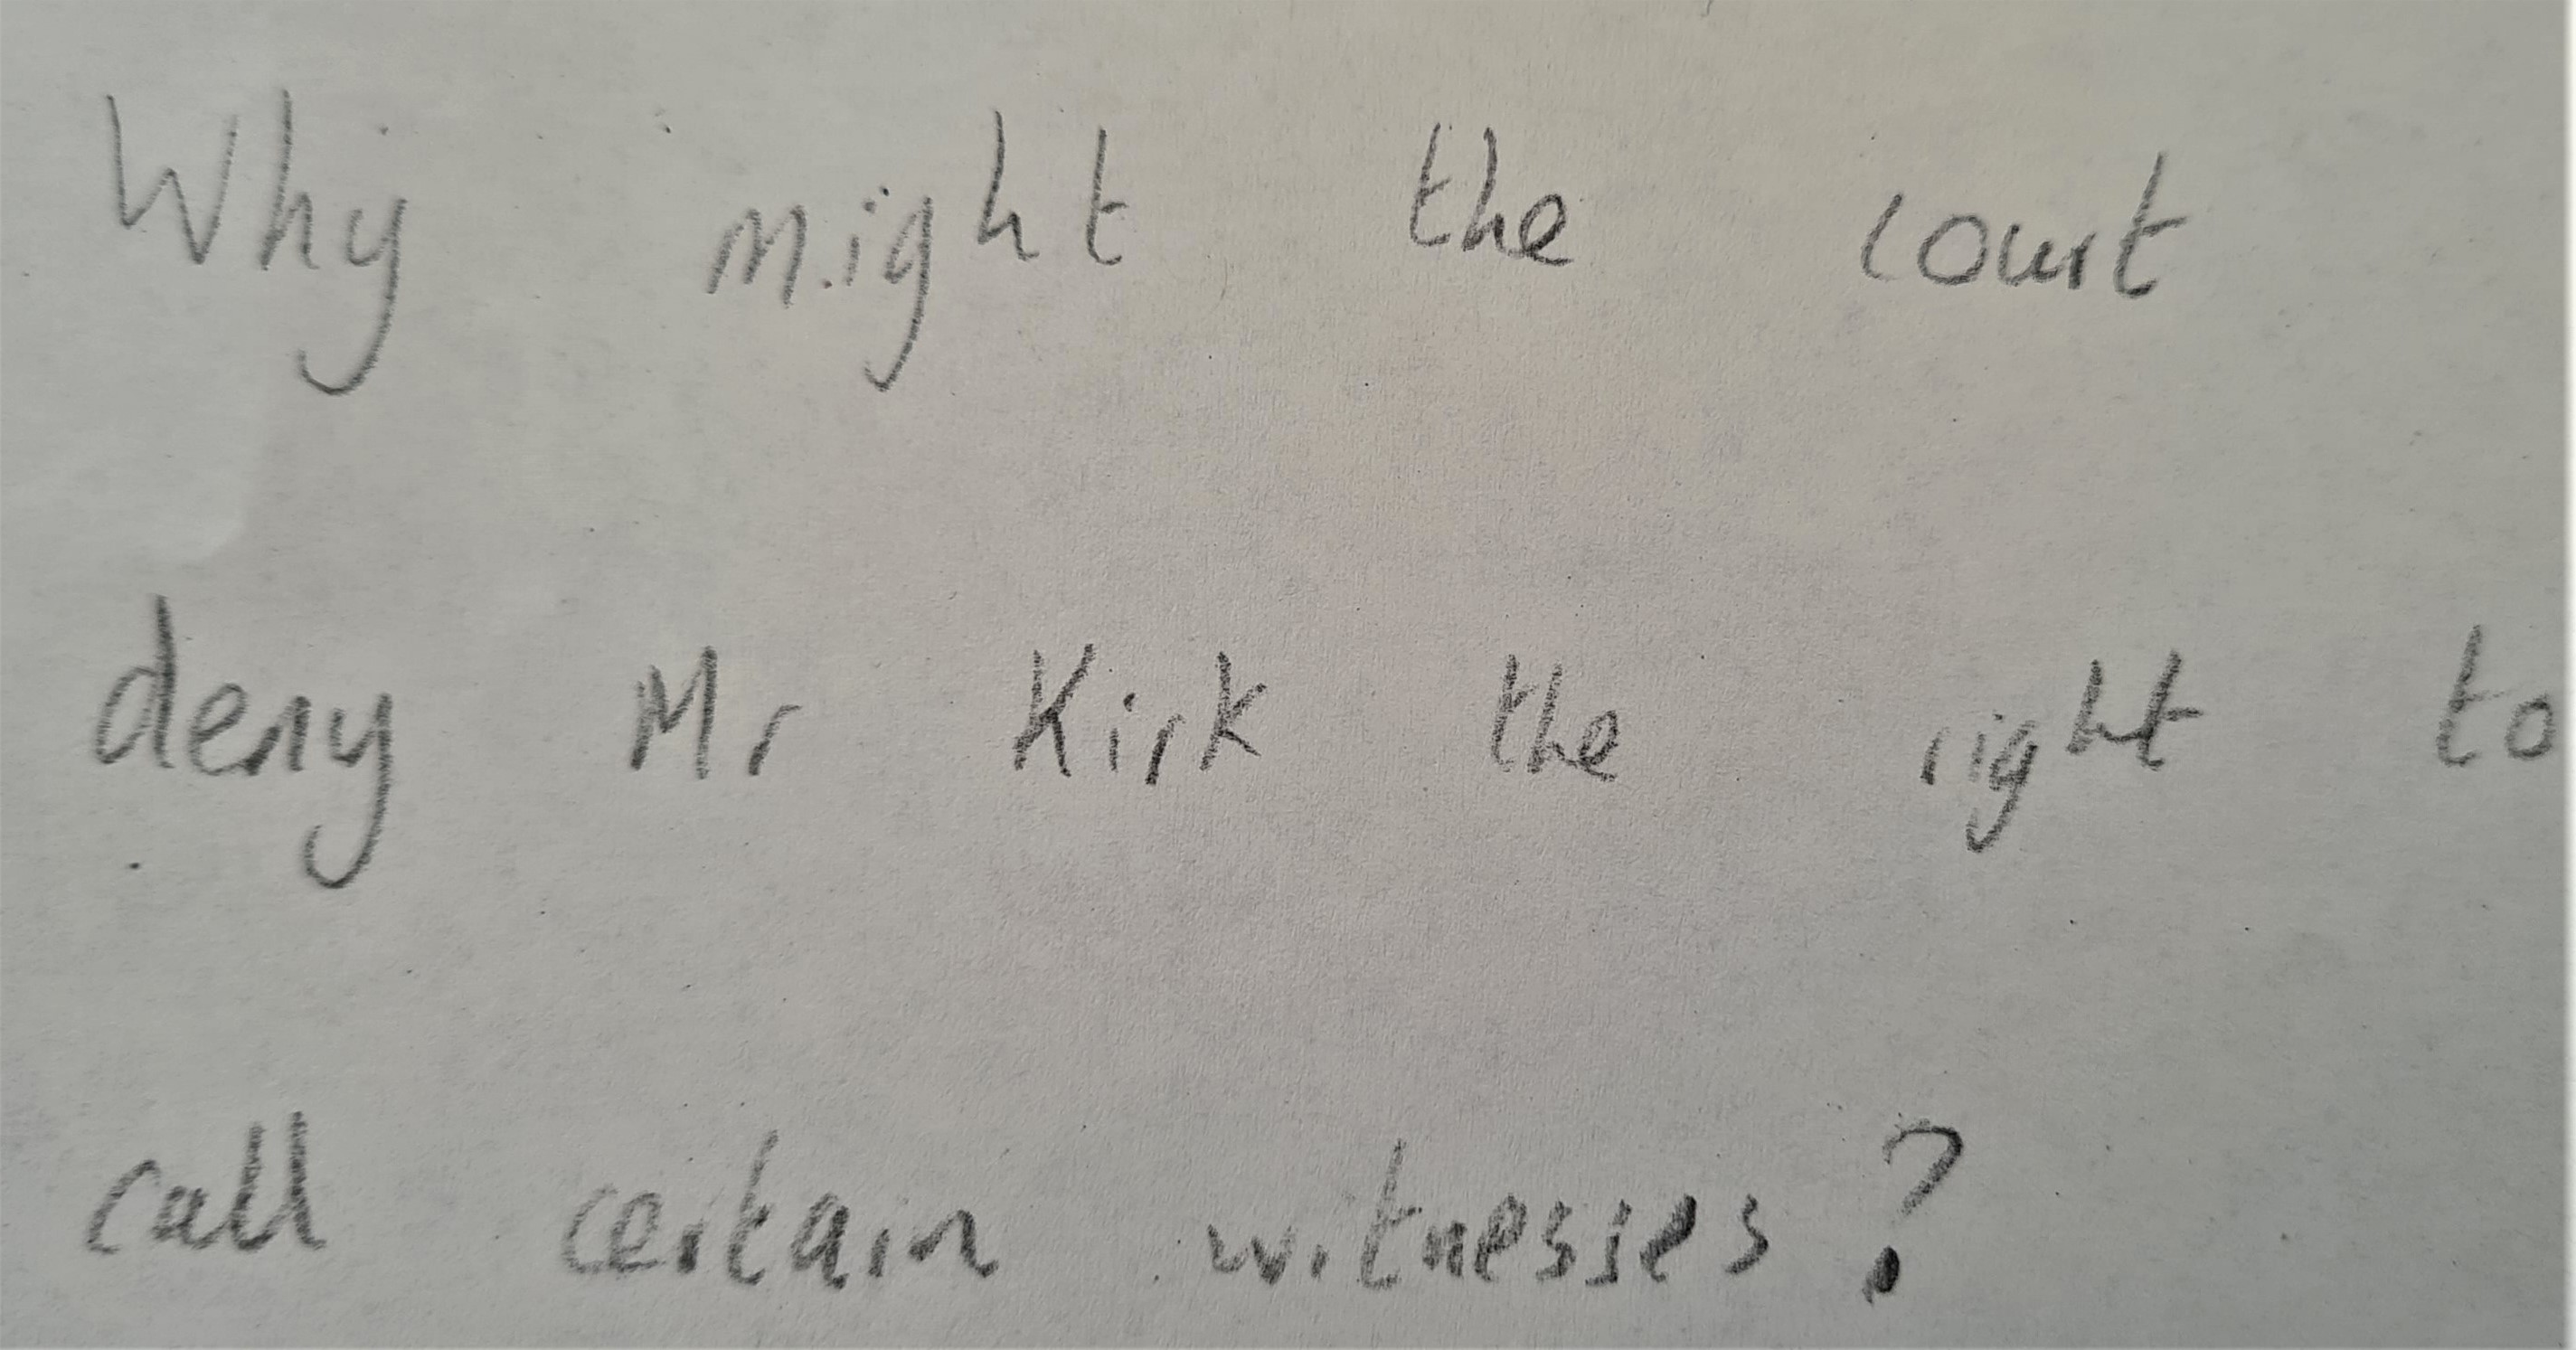 Why might the court
deny Mr Kirk the right to
call certain witnesses?